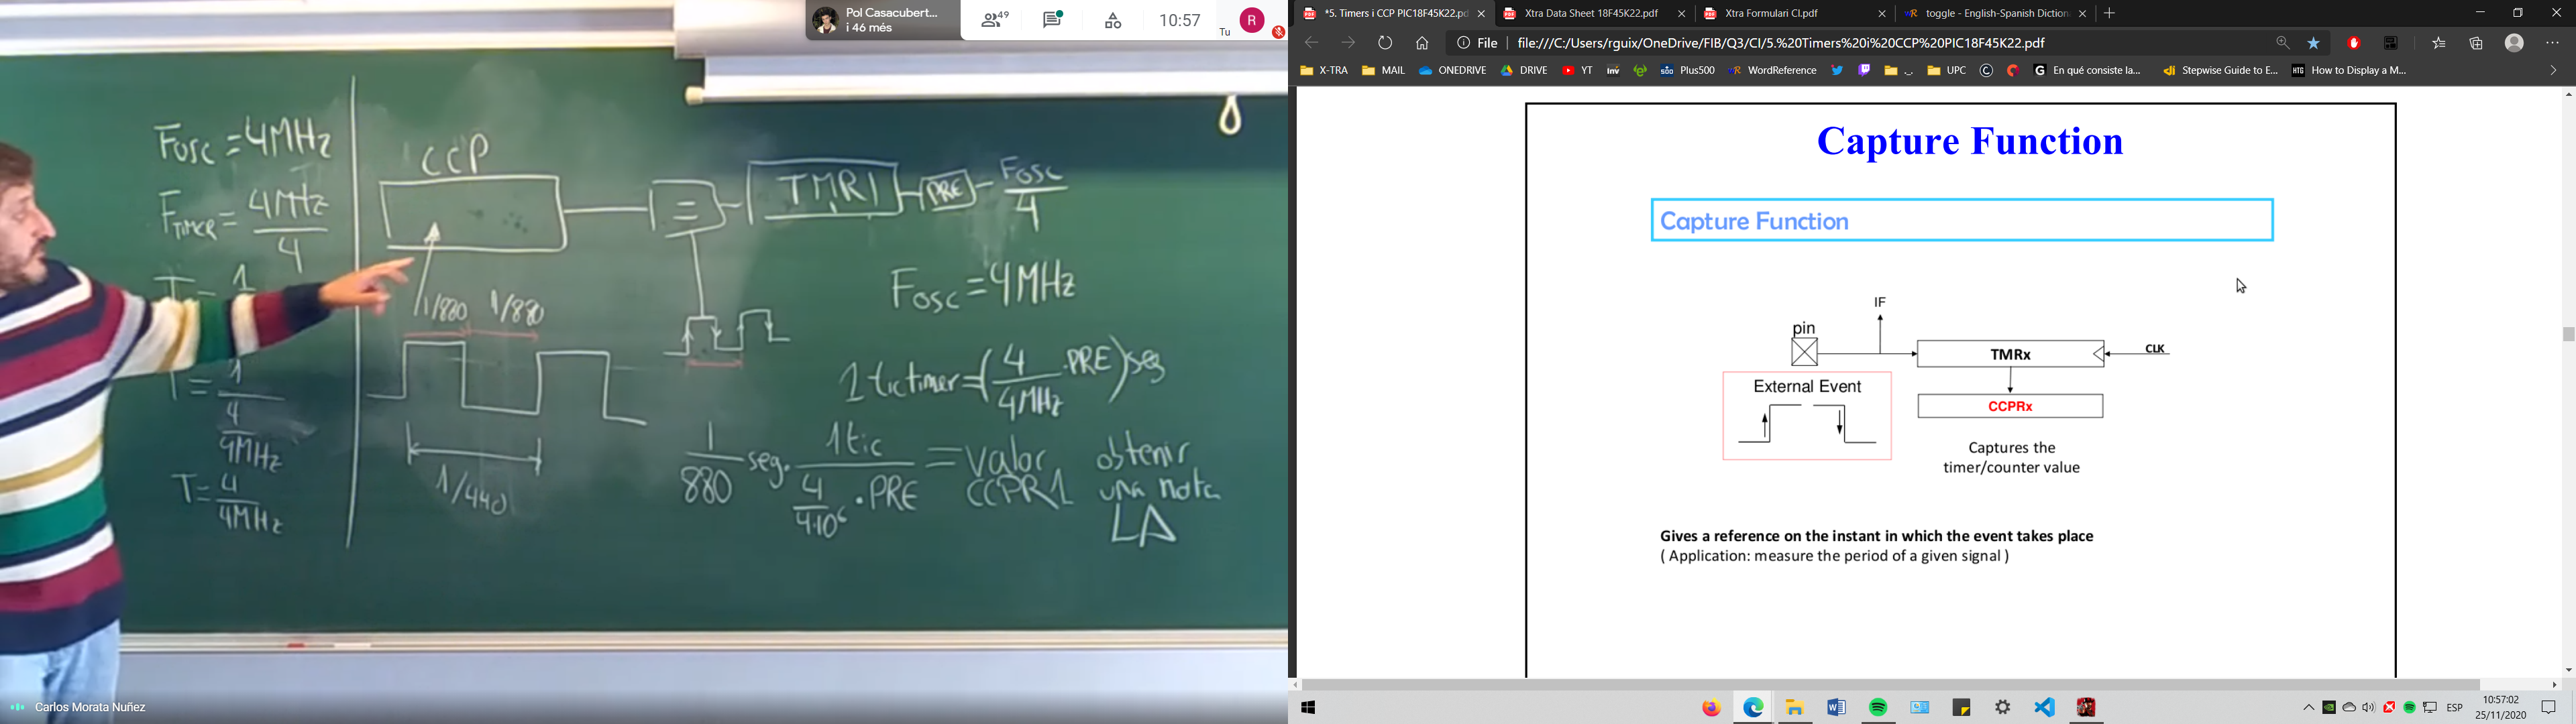 Pol Casacubert...
i 46 més
49
10:57
Tu
R
Fosc = 4MHz
FTIMER = 4MHz
4
T = 1
T = 1
4
4MHz
T = 4
4MHz
CCP
=
TMR1
PRE
Fosc
4
Fosc = 4MHz
1/880 1/880
1/440
1 tic timer = ( 4 . PRE ) seg
4MHz
1 seg. 1 tic = valor obtenir
880 4 . PRE CCPR1 una nota
4·10⁶ LA
Carlos Morata Nuñez
*5. Timers i CCP PIC18F45K22.pd
Xtra Data Sheet 18F45K22.pdf
Xtra Formulari CI.pdf
toggle - English-Spanish Diction
File
file:///C:/Users/rguix/OneDrive/FIB/Q3/CI/5.%20Timers%20i%20CCP%20PIC18F45K22.pdf
X-TRA
MAIL
ONEDRIVE
DRIVE
YT
inv
Plus500
WordReference
UPC
En qué consiste la...
Stepwise Guide to E...
HTG
How to Display a M...
Capture Function
Capture Function
IF
pin
TMRx
CLK
External Event
CCPRx
Captures the
timer/counter value
Gives a reference on the instant in which the event takes place
( Application: measure the period of a given signal )
ESP
10:57:02
25/11/2020